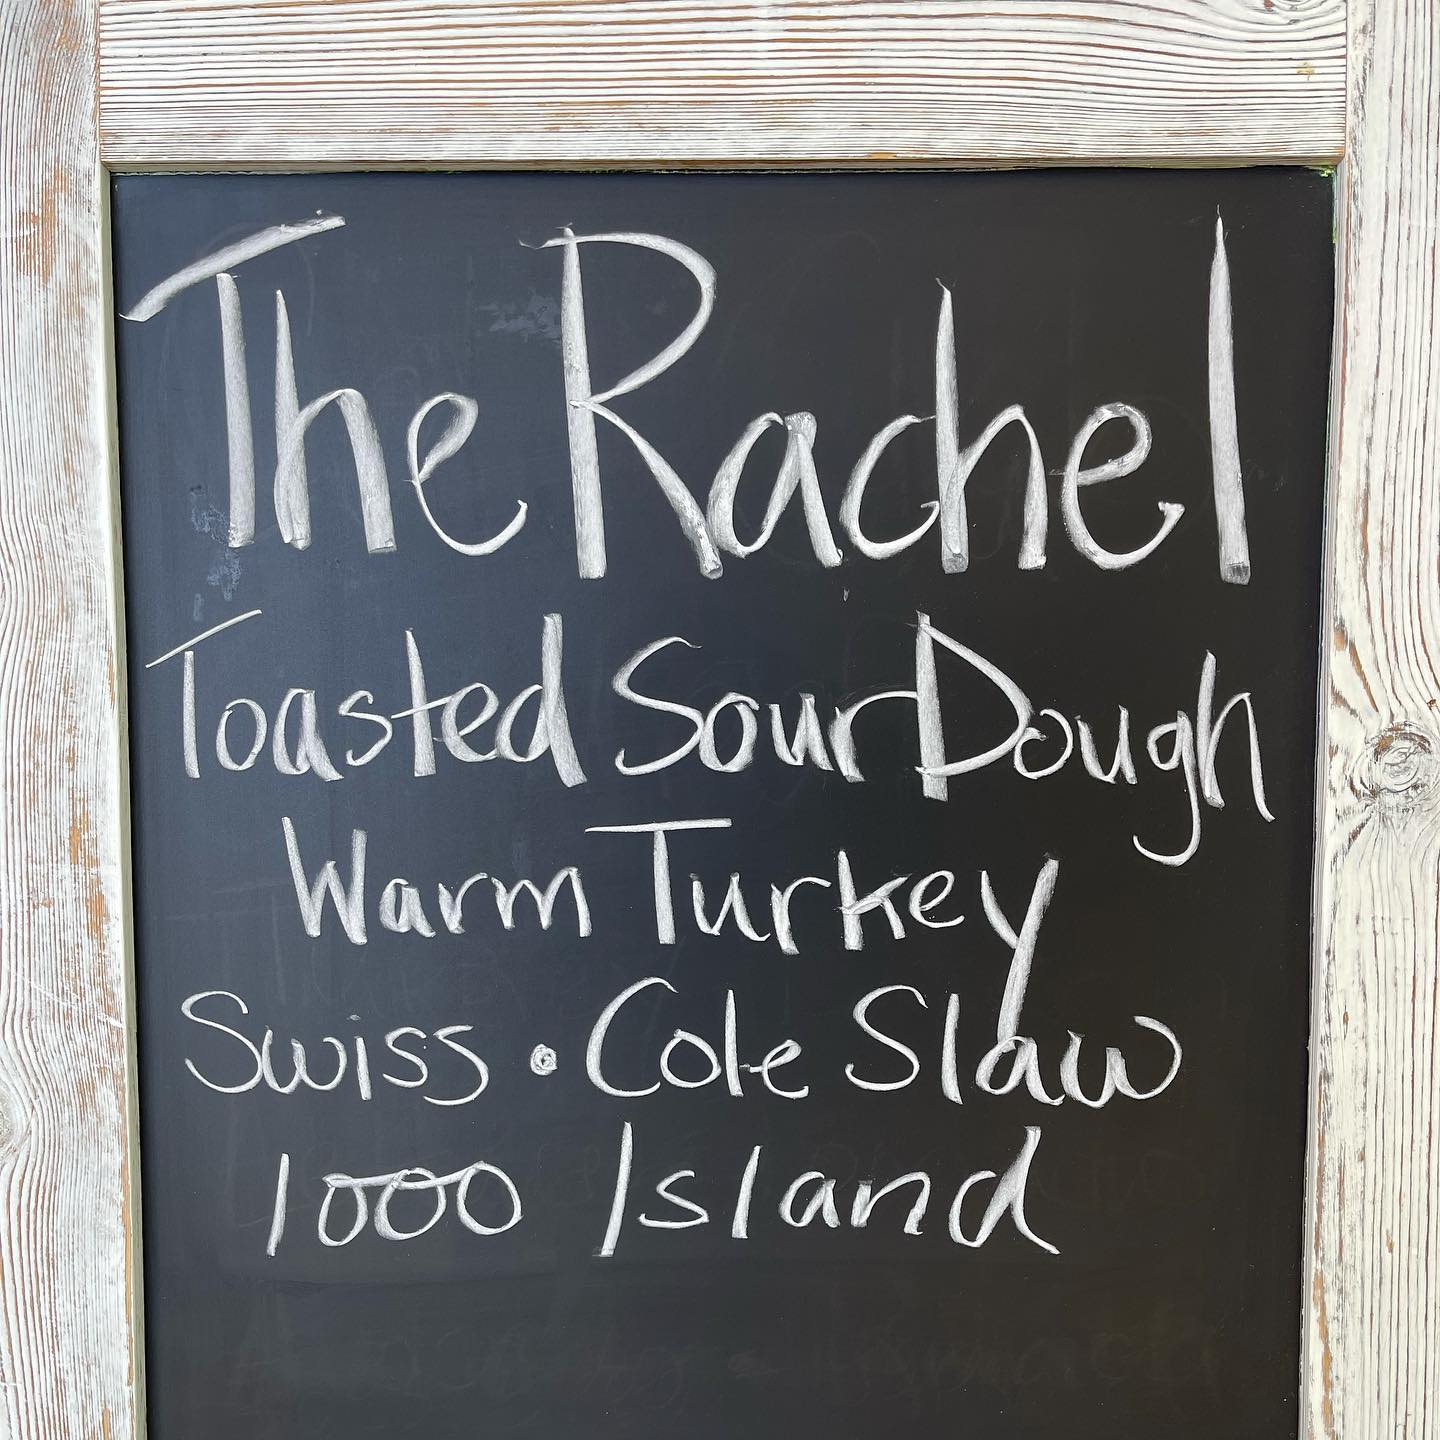 The Rachel
Toasted SourDough
Warm Turkey
Swiss • Cole Slaw
1000 Island